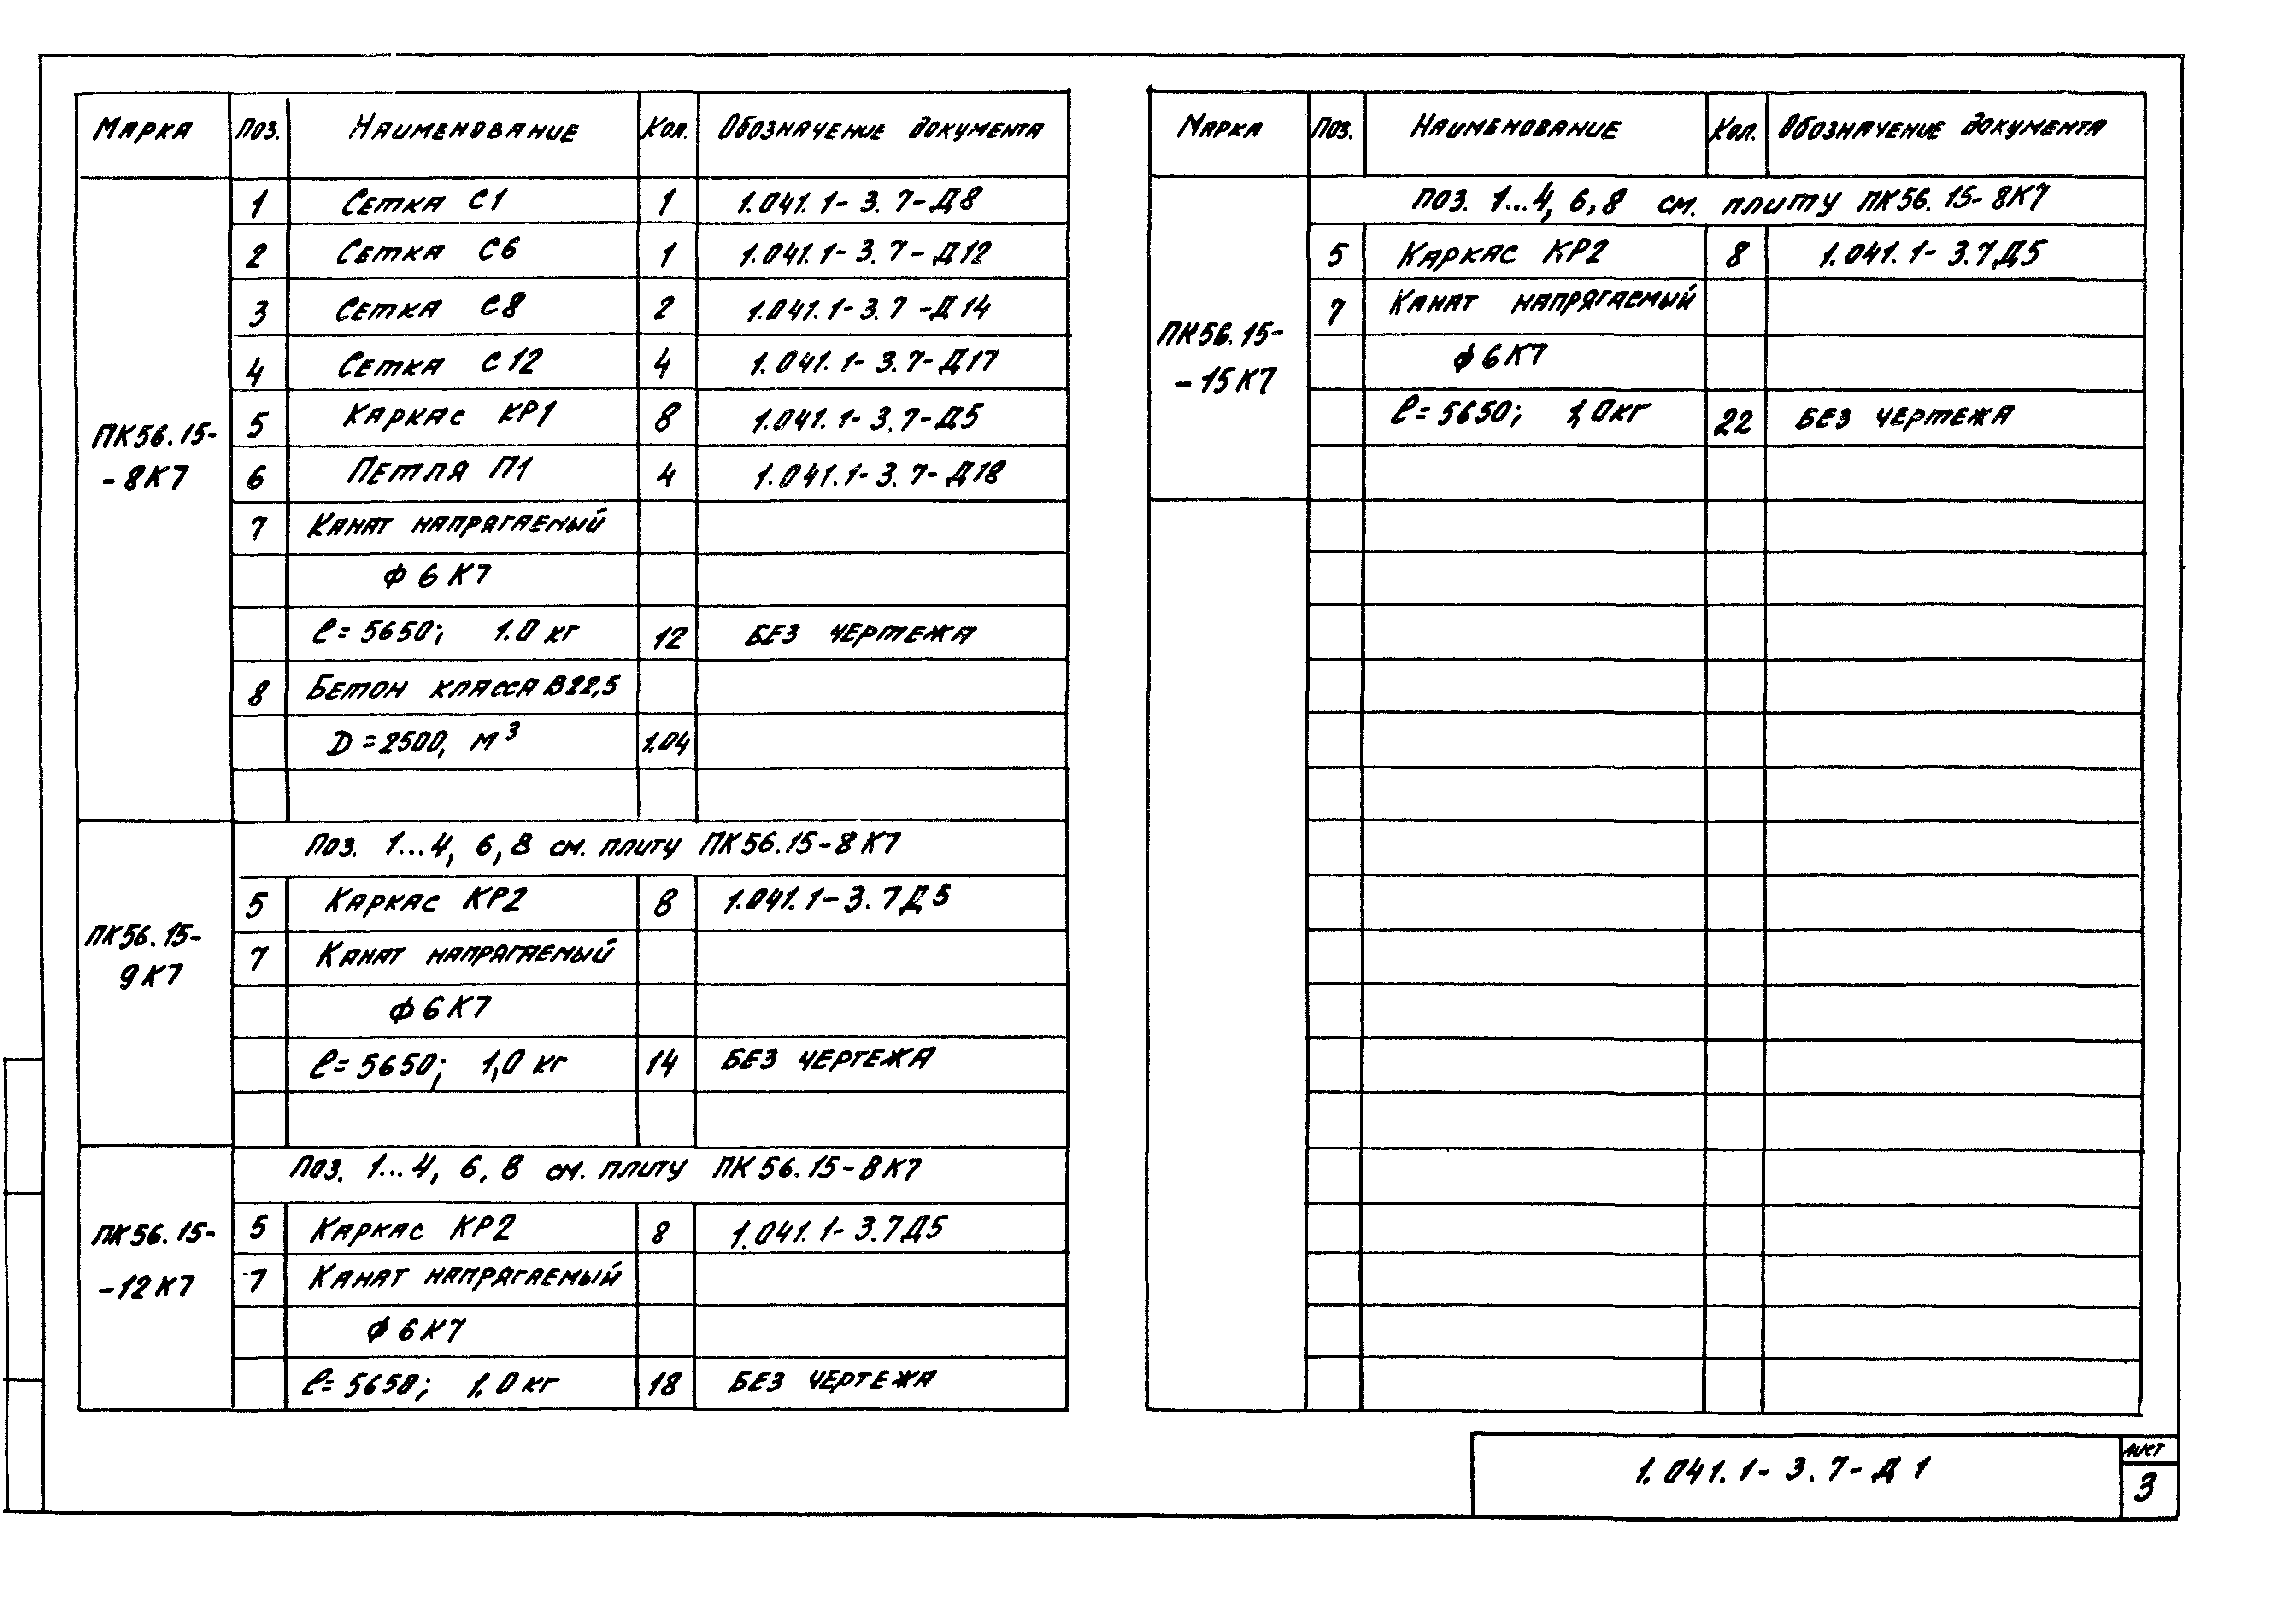 Марка Поз. Наименование Кол. Обозначение документа
1 Сетка С1 1 1.041.1-3.7-Д8
2 Сетка С6 1 1.041.1-3.7-Д12
3 Сетка С8 2 1.041.1-3.7-Д14
4 Сетка С12 4 1.041.1-3.7-Д17
ПК56.15-
-8К7
5 Каркас КР1 8 1.041.1-3.7-Д5
6 Петля П1 4 1.041.1-3.7-Д18
7 Канат напрягаемый
ф 6 К7
ℓ=5650; 1.0 кг 12 БЕЗ ЧЕРТЕЖА
8 Бетон класса В22,5
D=2500, м³ 1.04
Поз. 1...4, 6,8 см. плиту ПК56.15-8К7
ПК56.15-
9К7
5 Каркас КР2 8 1.041.1-3.7Д5
7 Канат напрягаемый
ф 6К7
ℓ=5650; 1,0 кг 14 БЕЗ ЧЕРТЕЖА
Поз. 1...4, 6,8 см. плиту ПК56.15-8К7
ПК56.15-
-12К7
5 Каркас КР2 8 1.041.1-3.7Д5
7 Канат напрягаемый
ф 6К7
ℓ=5650; 1,0 кг 18 БЕЗ ЧЕРТЕЖА
Марка Поз. Наименование Кол. Обозначение документа
поз. 1...4, 6,8 см. плиту ПК56.15-8К7
ПК56.15-
-15К7
5 Каркас КР2 8 1.041.1-3.7Д5
7 Канат напрягаемый
ф 6К7
ℓ=5650; 1,0кг 22 БЕЗ ЧЕРТЕЖА
1.041.1-3.7-Д1
Лист
3